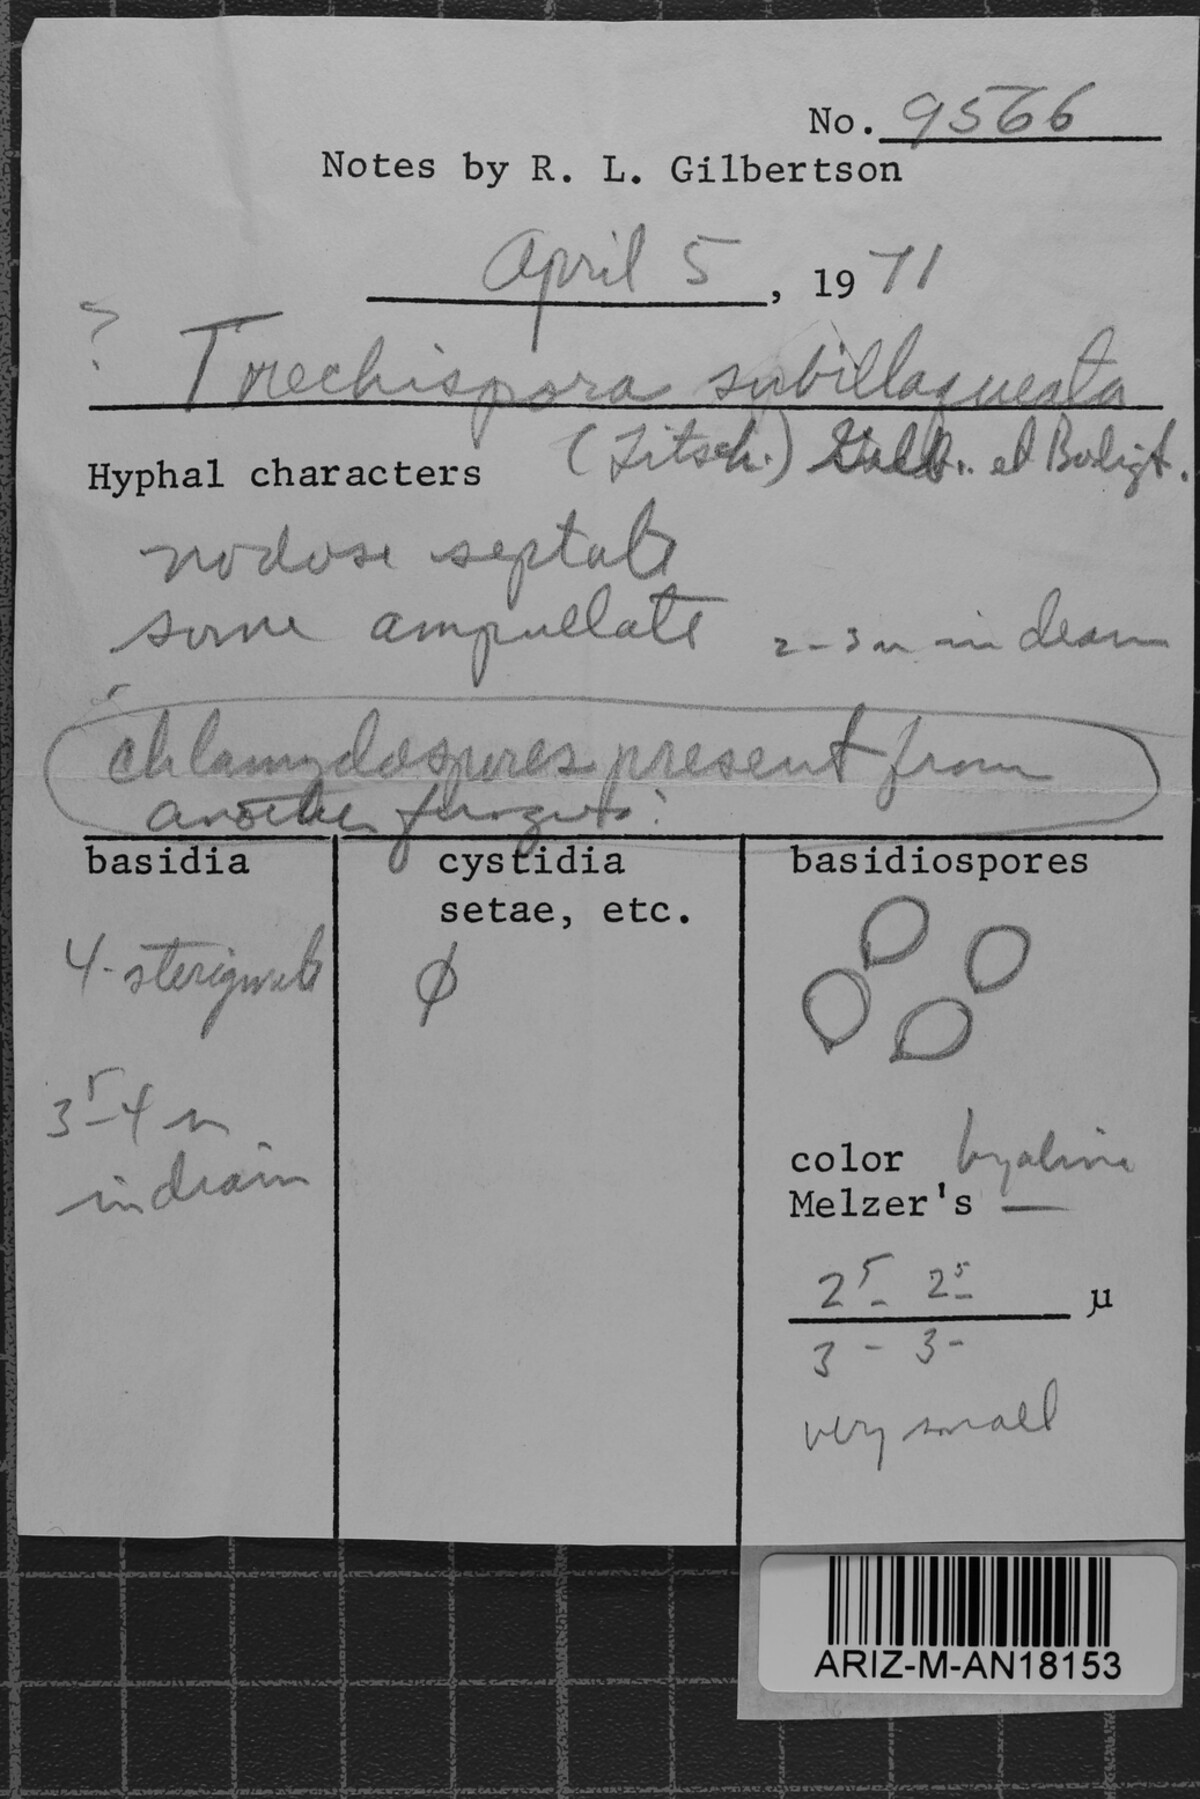 No. 9566
Notes by R. L. Gilbertson
April 5, 1971
? Trechispora subillaqueata
(Litsch.) et Budigt.
Hyphal characters
nodose septate
some ampullate 2-3 µ in diam
chlamydospores present from
another fungus?
basidia
4-sterigmate
3⁵-4 µ
in diam
cystidia
setae, etc.
ϕ
basidiospores
color hyaline
Melzer's —
2⁵- 2⁵- µ
3 - 3-
very small
ARIZ-M-AN18153